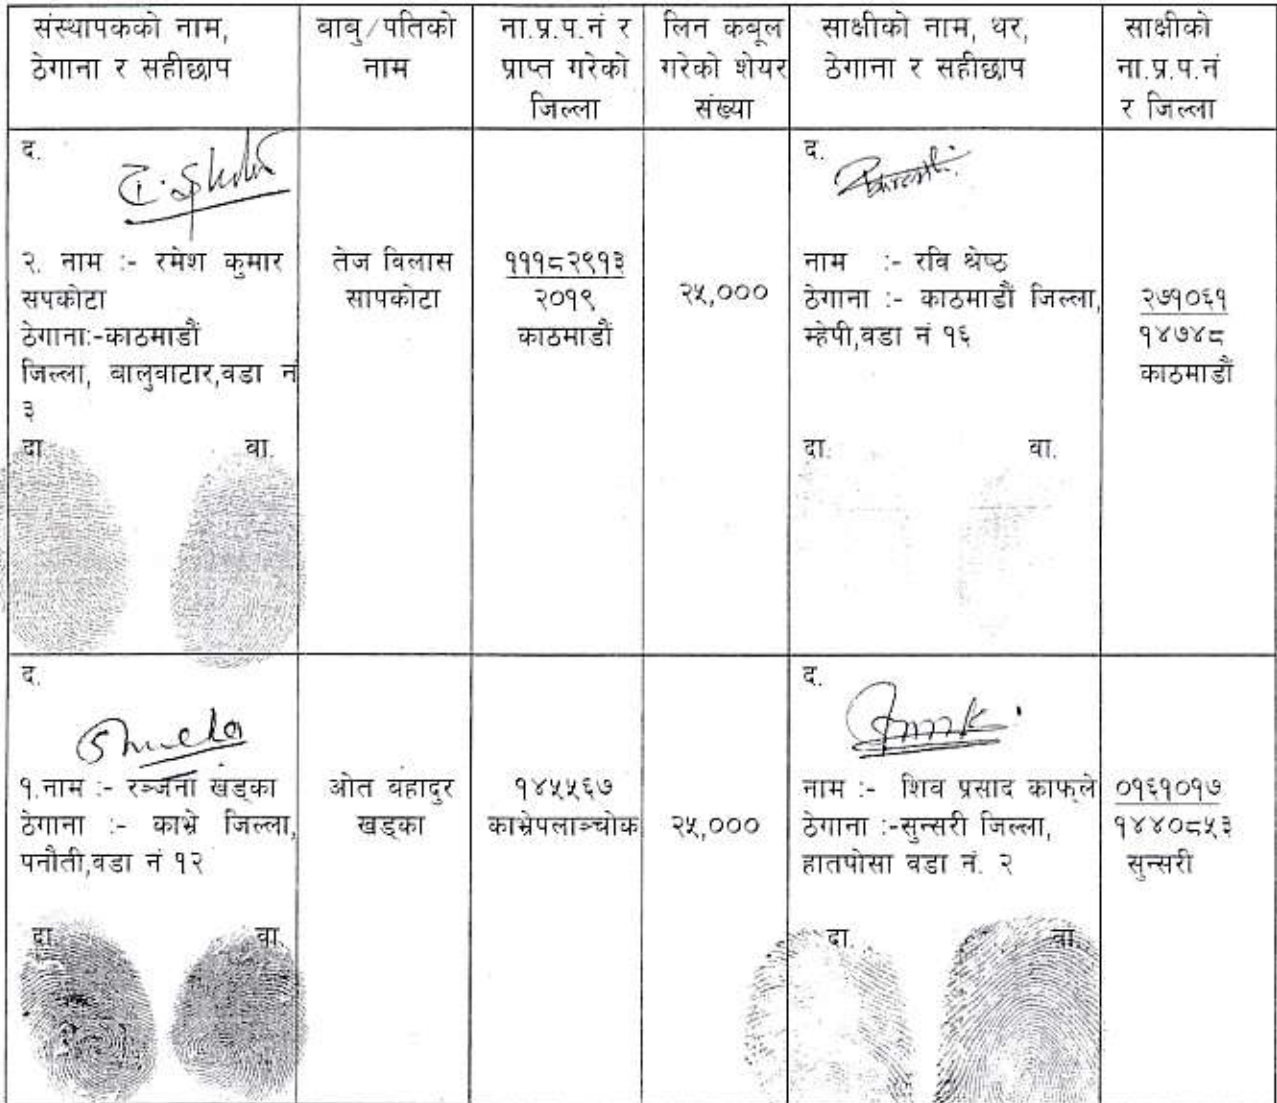 संस्थापकको नाम,
ठेगाना र सहीछाप
बाबु/पतिको
नाम
ना.प्र.प.नं र
प्राप्त गरेको
जिल्ला
लिन कबूल
गरेको शेयर
संख्या
साक्षीको नाम, थर,
ठेगाना र सहीछाप
साक्षीको
ना.प्र.प.नं
र जिल्ला
द.
२. नाम :- रमेश कुमार
सपकोटा
ठेगाना:-काठमाडौं
जिल्ला, बालुवाटार,वडा नं
३
दा. बा.
तेज विलास
सापकोटा
१११८२९१३
२०१९
काठमाडौं
२५,०००
द.
नाम :- रवि श्रेष्ठ
ठेगाना :- काठमाडौं जिल्ला,
म्हेपी,वडा नं १६
दा. बा.
२७१०६१
१४७४८
काठमाडौं
द.
१.नाम :- रञ्जना खड्का
ठेगाना :- काभ्रे जिल्ला,
पनौती,वडा नं १२
दा. बा.
ओत बहादुर
खड्का
१४५५६७
काभ्रेपलाञ्चोक
२५,०००
द.
नाम :- शिव प्रसाद काफ्ले
ठेगाना :-सुन्सरी जिल्ला,
हातपोसा वडा नं. २
दा. बा.
०१६१०१७
१४४०८५३
सुन्सरी